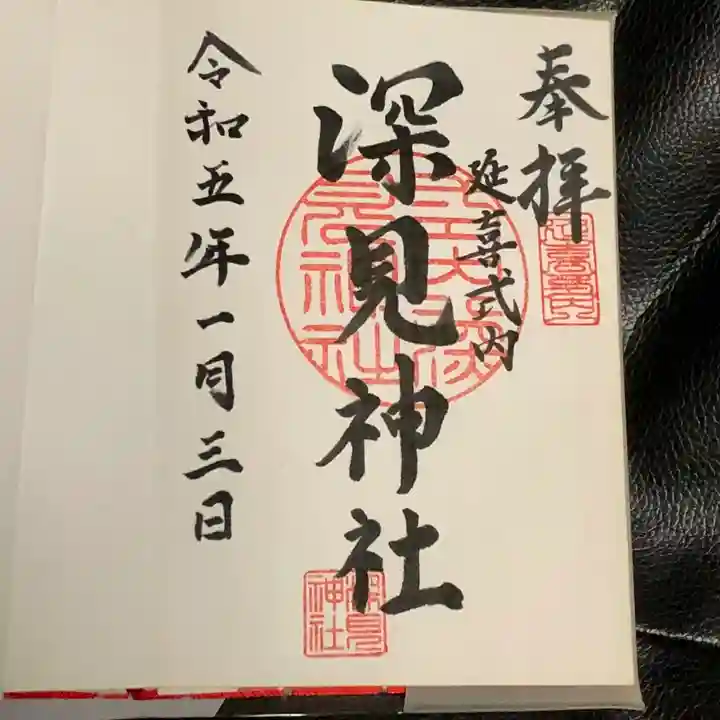 奉拝
延喜式内
深見神社
令和五年一月三日
深見
神社